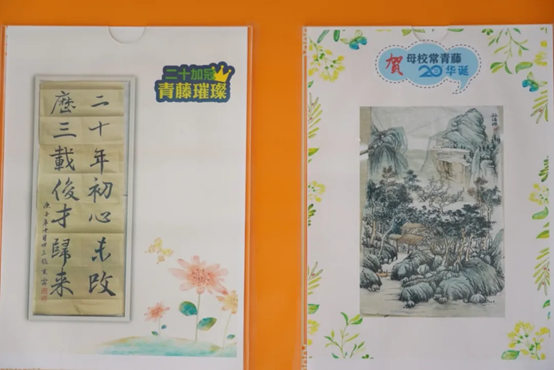 二十加冠
青藤璀璨
二十年初心未改
歷三載俊才歸来
贺
母校常青藤
20华诞